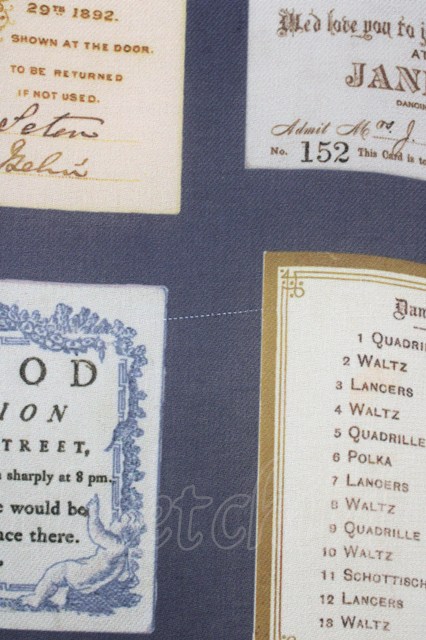 29TH 1892.
SHOWN AT THE DOOR.
TO BE RETURNED
IF NOT USED.
We'd love you to j
AT
JAN
DANCIN
Admit Mrs J.
No. 152 This Card is to
OOD
ION
TREET,
s sharply at 8 pm.
e would be
nce there.
1 QUADRI
2 WALTZ
3 LANCERS
4 WALTZ
5 QUADRILLE
6 POLKA
7 LANCERS
8 WALTZ
9 QUADRILLE
10 WALTZ
11 SCHOTTISCH
12 LANCERS
13 WALTZ